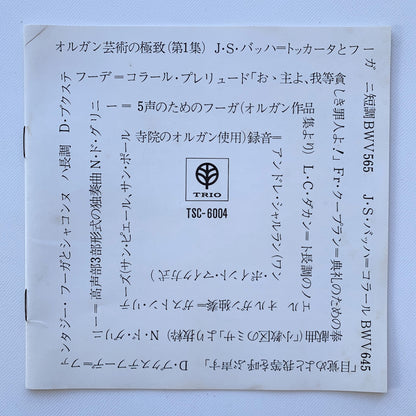 オルガン芸術の極致(第1集) J・S・バッハ=トッカータとフーガ
ニ短調BWV565 J・S・バッハ=コラールBWV645
「目覚めよと我等を呼ぶ声す」 D・ブクステフーデ=ファ
ンタジー・フーガとシャコンヌ ハ長調 D・ブクステ
フーデ=コラール・プレリュード「おゝ主よ、我等貧
しき罪人よ!」 Fr・クープラン=典礼のための奉
献曲(小教区のミサより抜粋) N・ド・グリニ
ー=高声部3部形式の独奏曲 N・ド・グリニ
ー=5声のためのフーガ(オルガン作品
集より) L・C・ダカン=ト長調のノエ
ル オルガン独奏=ガストン・リテ
ーズ(サン・ピエール、サン・ポール
寺院のオルガン使用)録音=
アンドレ・シャルラン(ワン
・ポイント・マイク方式)
TRIO
TSC-6004